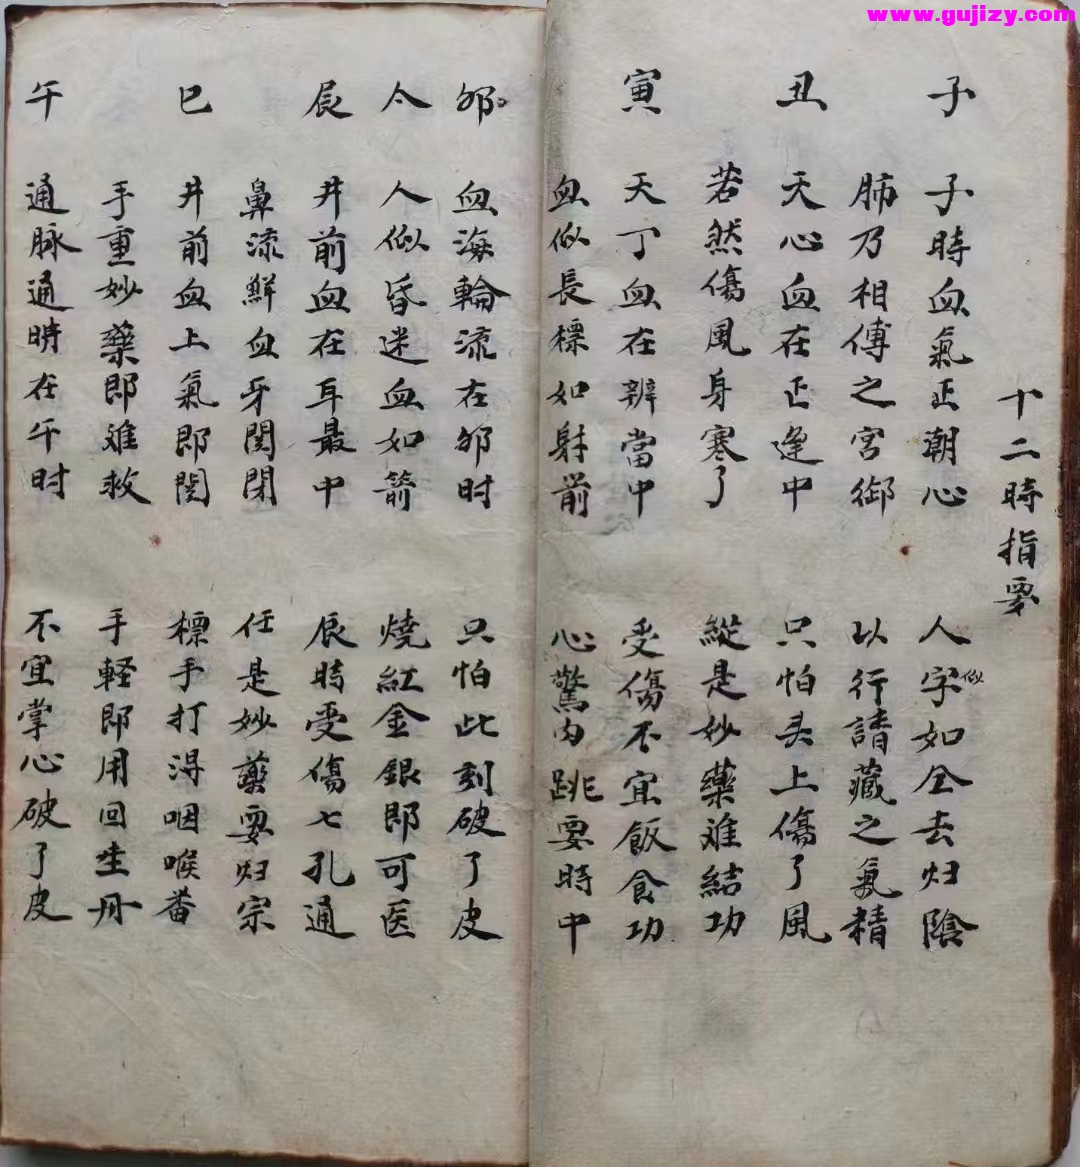 www.gujizy.com
十二時指要
子 子時血氣正潮心 人字似如全去归陰
肺乃相傳之宮御 以行請藏之氣精
丑 天心血在正逢中 只怕头上傷了風
若然傷風身寒了 縱是妙藥难結功
寅 天丁血在辨當中 受傷不宜飯食功
血似長標如射前 心驚内跳要時中
夘 血海輪流在夘时 只怕此刻破了皮
亼 人似昏迷血如箭 燒紅金銀即可医
辰 井前血在耳最中 辰時受傷七孔通
鼻流鮮血牙関閉 任是妙藥要归宗
巳 井前血上氣即関 標手打淂咽喉番
手重妙藥即难救 手軽即用回生丹
午 通脉通時在午时 不宜掌心破了皮